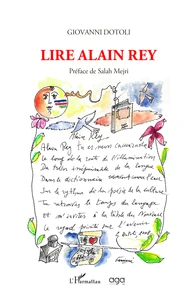 GIOVANNI DOTOLI
LIRE ALAIN REY
Préface de Salah Mejri
Alain Rey tu es
Le long de la route de l'illumination
Du trésor de la langue
Dans le dictionnaire
Sur le rythme de la poésie de la culture
le temps du langage
et m'invites à la table du
Le regard pointé sur l'avenir
L'Harmattan
aga